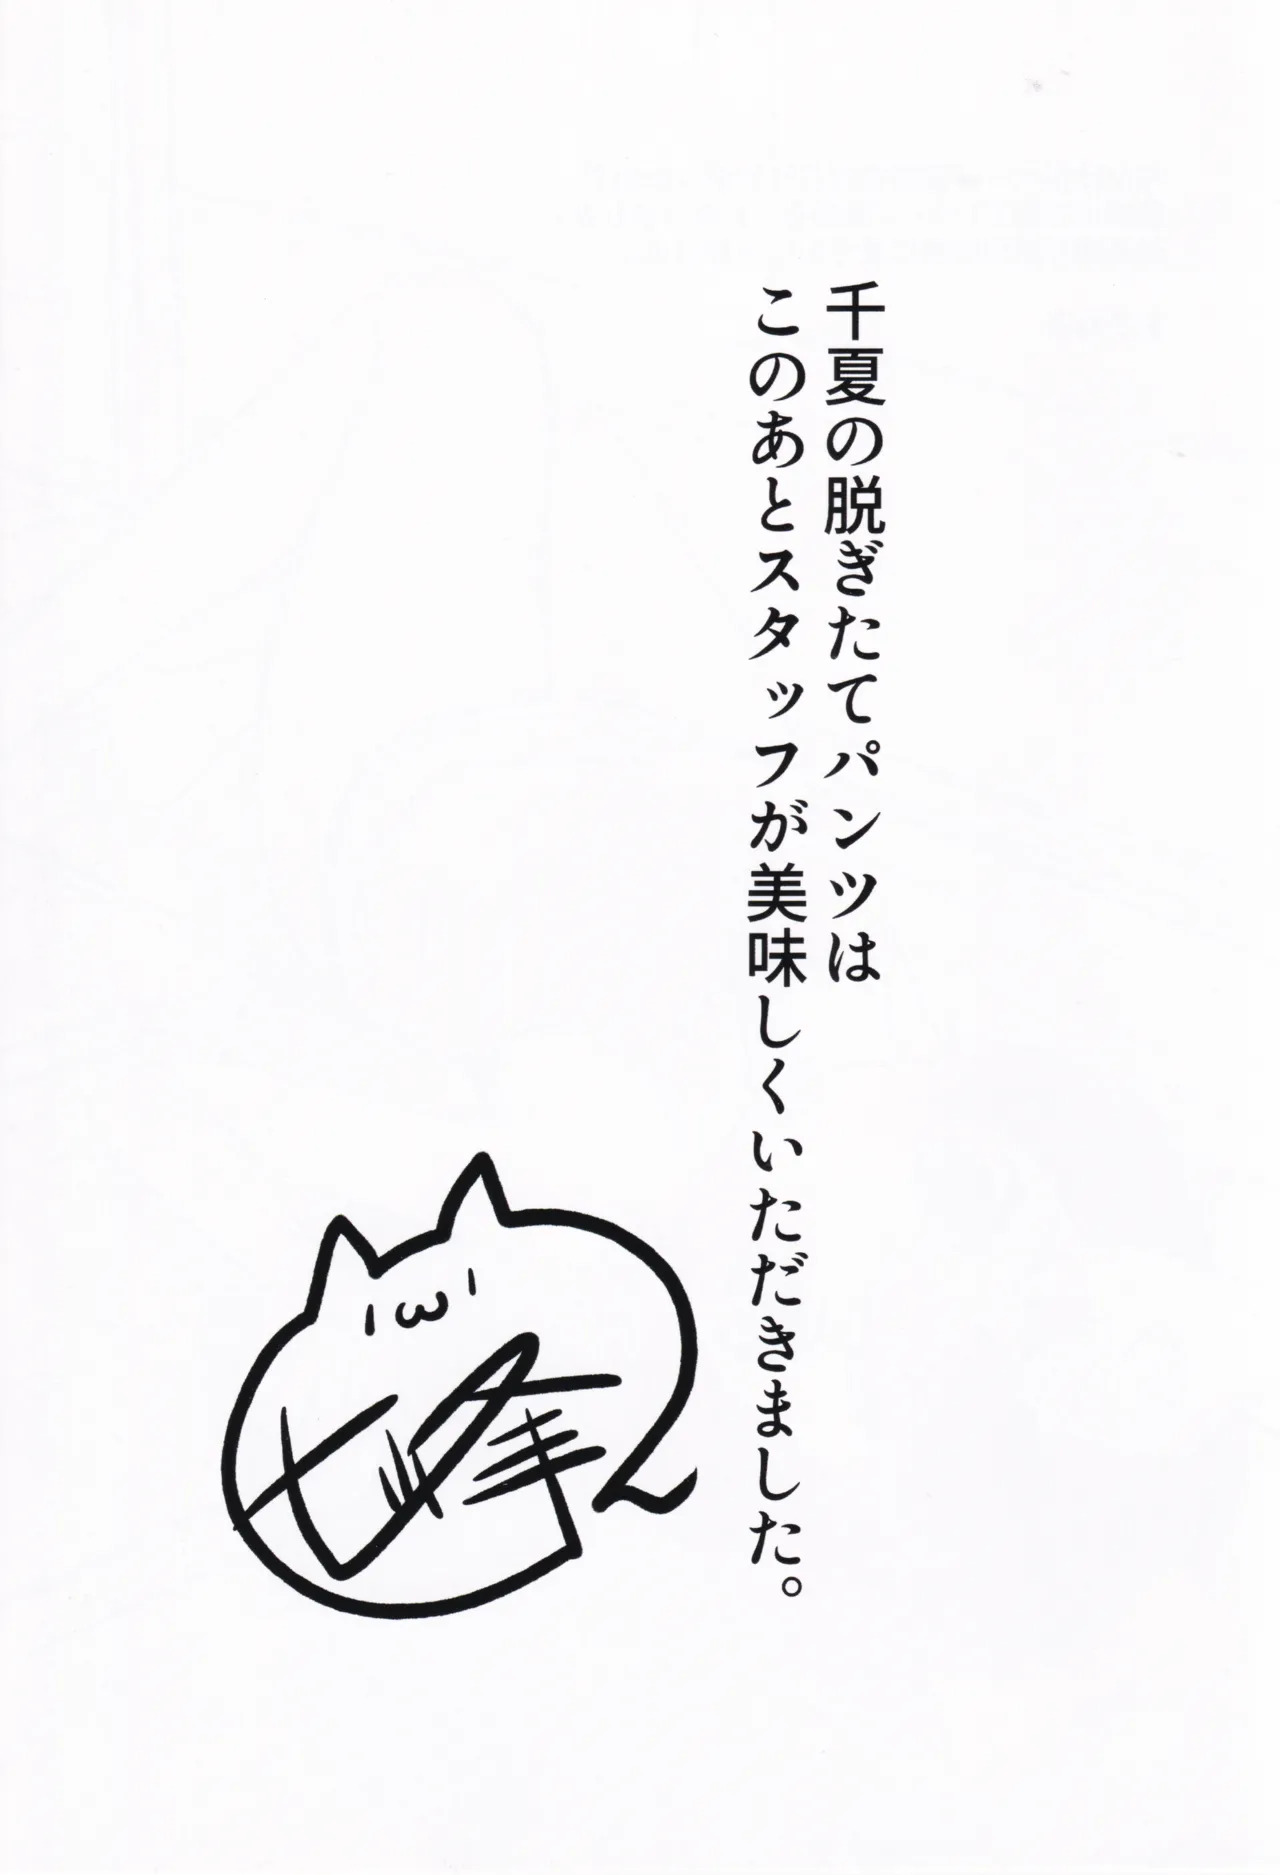 千夏の脱ぎたてパンツは
このあとスタッフが美味しくいただきました。